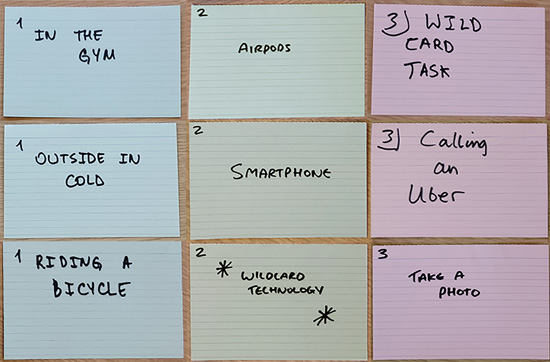 1 IN THE
GYM
2
AIRPODS
3) WILD
CARD
TASK
1
OUTSIDE IN
COLD
2
SMARTPHONE
3) Calling
an
Uber
1 RIDING A
BICYCLE
2
* WILDCARD
TECHNOLOGY
*
3
TAKE A
PHOTO